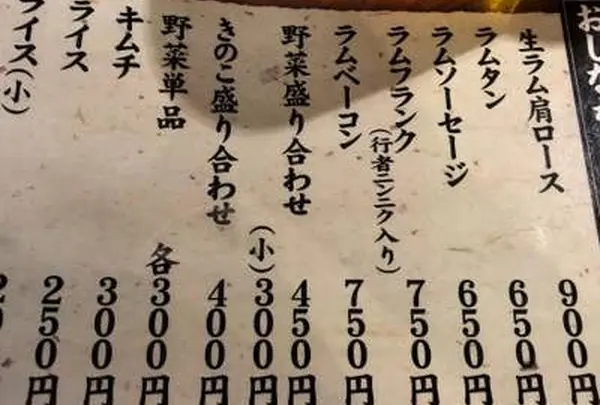 おしな
生ラム肩ロース 900円
ラムタン 650円
ラムソーセージ 650円
ラムフランク(行者ニンニク入り) 750円
ラムベーコン 750円
野菜盛り合わせ 450円
(小)300円
きのこ盛り合わせ 400円
野菜単品 各300円
キムチ 300円
ライス 250円
ライス(小)